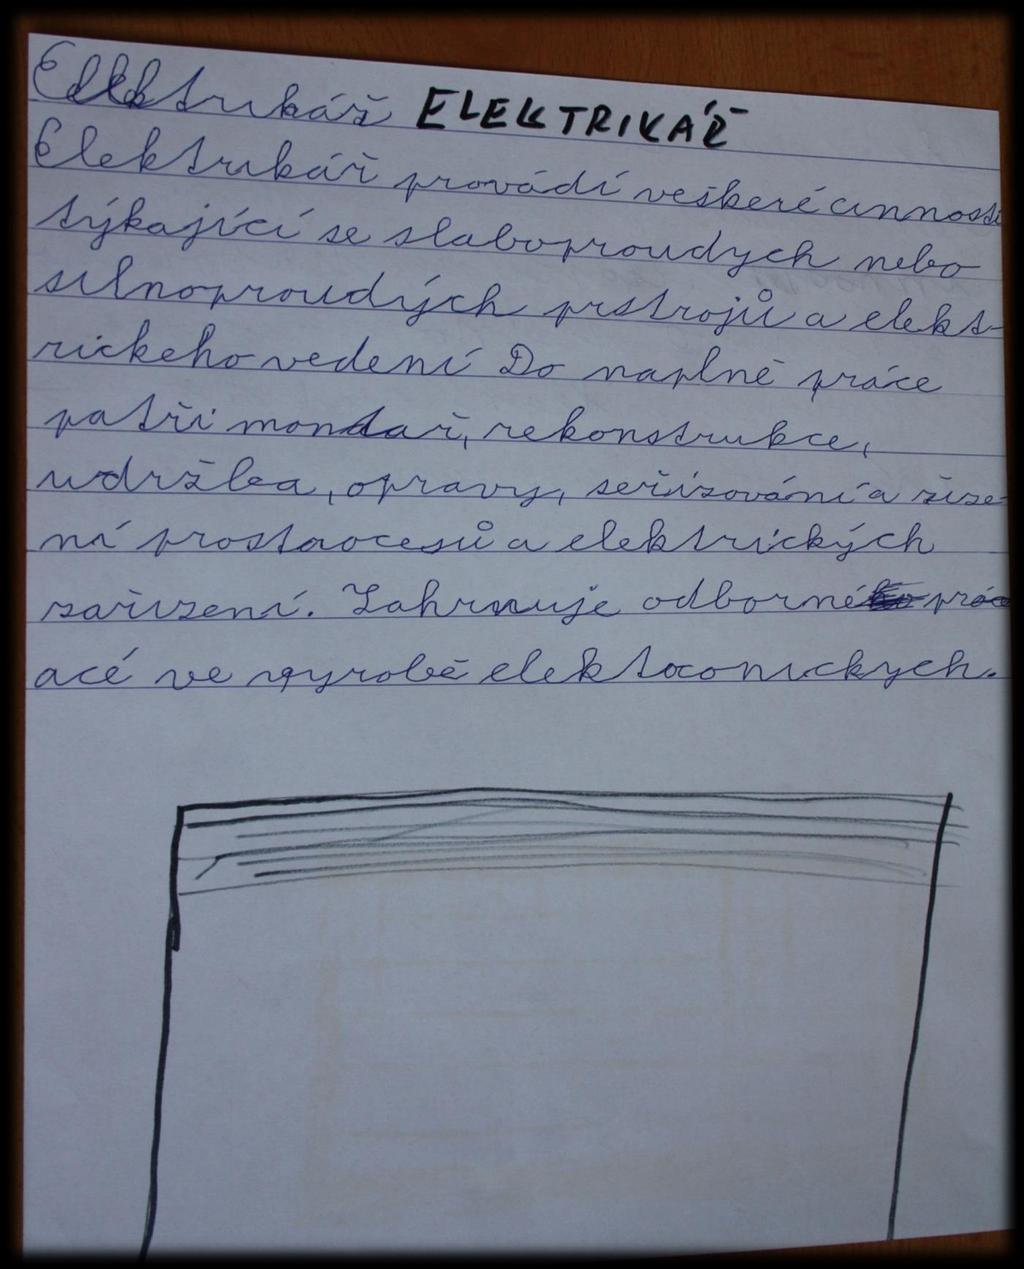 Elektrikář ELEKTRIKÁŘ
Elektrikář provádí veškeré cinnosti
týkající se slaboproudych nebo
silnoproudých prstrojů a elekt-
rickeho vedení Do naplně práce
patři mondař, rekonstrukce,
udržba, opravy, seřizování a řize
ní a elektrických
zařizení. Zahrnuje odborné
acé ve vyrobě